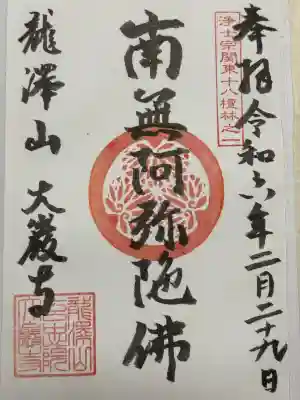 奉拝 令和六年二月二十九日
浄土宗関東十八檀林之一
南無阿弥陀佛
龍澤山 大巌寺
龍澤山
大巌寺